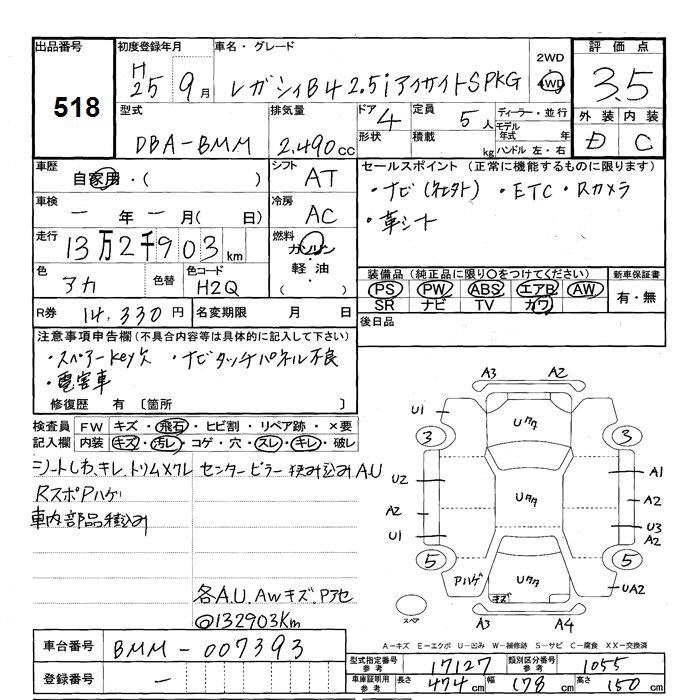 出品番号
518
初度登録年月
H
25 9月
車名・グレード
レガシィB4 2.5iアイサイトSPKG
2WD
4WD
評価点
3.5
外装 内装
D C
型式
DBA-BMM
排気量
2.490cc
ドア 4
形状
定員 5人
積載 kg
ディーラー・並行
モデル年式 年
ハンドル 左・右
車歴
自家用・( )
シフト
AT
車検
一年一月( 日)
冷房
AC
走行
13万2千903km
燃料
ガソリン
軽油
( )
色
アカ
色替
色コード
H2Q
R券 14.330円
名変期限 月 日
セールスポイント (正常に機能するものに限ります)
・ナビ(社外) ・ETC・Rカメラ
・革シート
装備品(純正品に限り○をつけてください)
PS PW ABS エアB AW
SR ナビ TV カワ
新車保証書
有・無
後日品
注意事項申告欄(不具合内容等は具体的に記入して下さい)
・スペアーKey欠 ・ナビタッチパネル不良
・雹害車
修復歴 有〔箇所 〕
検査員記入欄
FW キズ・飛石・ヒビ割・リペア跡・×要
内装 キズ・汚レ・コゲ・穴・スレ・キレ・破レ
シートしわ、キレ、トリムメクレ センターピラー挟み込みAU
RスポPハゲ
車内部品積込み
各A.U.AWキズ.Pアセ
@132903Km
車台番号
BMM-007393
登録番号
一
A3 A2
U1
Uタタ
3 3
U2
A1
A2
A2
Uタタ
U3
A2
U1
5 5
Pハゲ
Uタタ
キズ
UA2
スペア
A3 A4
A-キズ E-エクボ U-凹み W-補修跡 S-サビ C-腐食 XX-交換済
型式指定番号 参考 17127
類別区分番号 参考 1055
車庫証明用 参考 長さ 474cm 幅 178cm 高さ 150cm